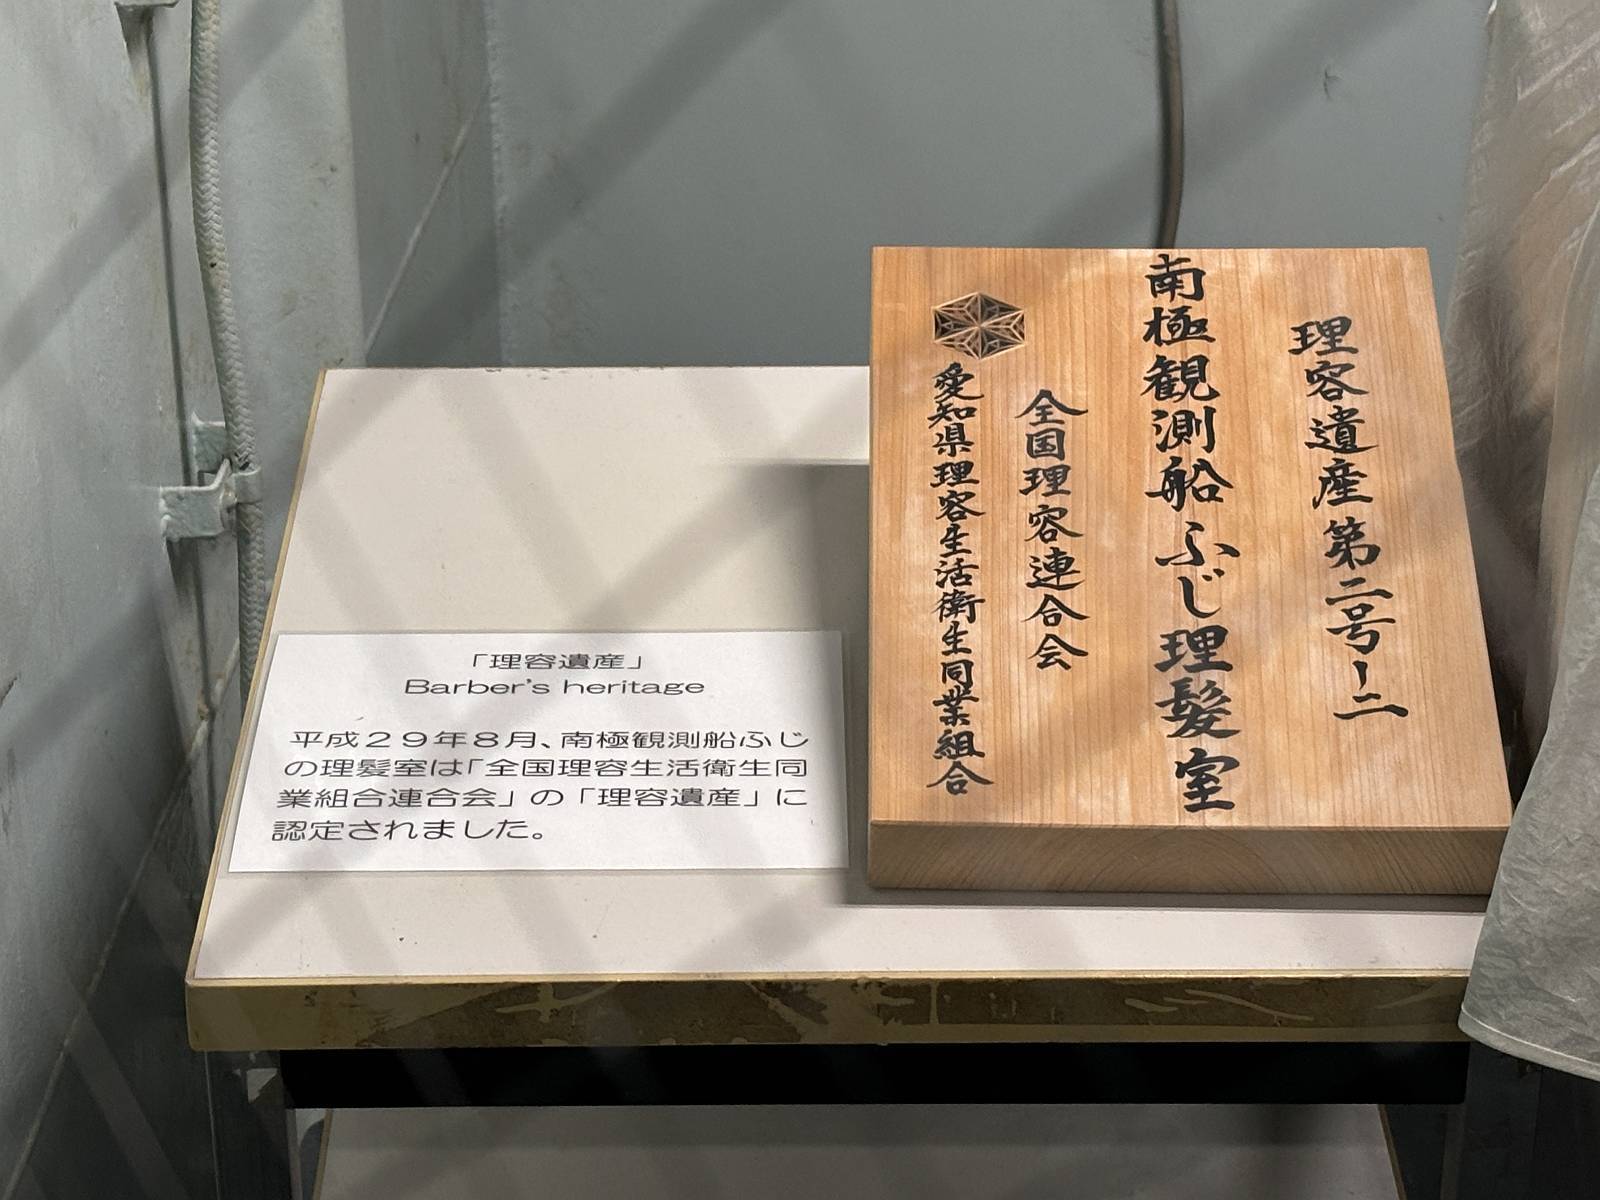 「理容遺産」
Barber's heritage
平成29年8月、南極観測船ふじ
の理髪室は「全国理容生活衛生同
業組合連合会」の「理容遺産」に
認定されました。
理容遺産第二号ー二
南極観測船ふじ理髪室
全国理容連合会
愛知県理容生活衛生同業組合